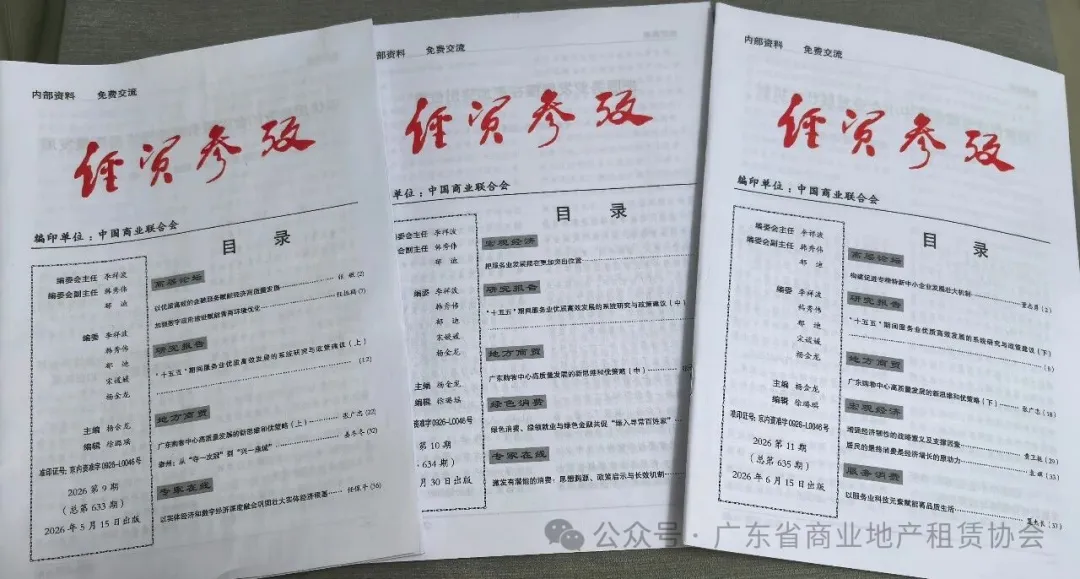 内部资料 免费交流
经贸参考
编印单位：中国商业联合会
目 录
编委会主任 李祥波
编委会副主任 韩秀伟
郑 迪
编委 李祥波
韩秀伟
郑 迪
宋媛媛
杨金龙
主编 杨金龙
编辑 徐璐琪
准印证号：京内资准字0926-L0046号
2026 第 9 期
（总第 633 期）
2026 年 5 月 15 日出版
高层论坛
以优质高效的金融服务赋能经济高质量发展
加强数字应用场景赋能营商环境优化
研究报告
“十五五”期间服务业优质高效发展的系统研究与政策建议（上）
(12)
地方商贸
广东购物中心高质量发展的新思维和优策略（上） 张广志 (22)
专家在线
以实体经济和数字经济深度融合巩固壮大实体经济根基 任保平 (36)
内部资料 免费交流
经贸参考
单位：中国商业联合会
目 录
编委会主任 李祥波
会副主任 韩秀伟
郑 迪
编委 李祥波
韩秀伟
郑 迪
宋媛媛
杨金龙
主编 杨金龙
编辑
第 10 期
634 期）
月 30 日出版
宏观经济
把服务业发展摆在更加突出位置
研究报告
“十五五”期间服务业优质高效发展的系统研究与政策建议（中）
地方商贸
广东购物中心高质量发展的新思维和优策略（中）
绿色消费
绿色消费、绿领就业与绿色金融共促“飞入寻常百姓家”
专家在线
激发有潜能的消费：思想脉络、政策启示与长效机制
内部资料 免费交流
经贸参考
编印单位：中国商业联合会
目 录
编委会主任 李祥波
编委会副主任 韩秀伟
郑 迪
编委 李祥波
韩秀伟
郑 迪
宋媛媛
杨金龙
主编 杨金龙
编辑 徐璐琪
准印证号：京内资准字0926-L0046号
2026 第 11 期
（总第 635 期）
2026 年 6 月 15 日出版
高层论坛
构建促进专精特新中小企业发展壮大机制
研究报告
“十五五”期间服务业优质高效发展的系统研究与政策建议（下）
地方商贸
广东购物中心高质量发展的新思维和优策略（下） 张广志 (18)
宏观经济
增强经济韧性的战略意义及支撑因素
居民的最终消费是经济增长的原动力
服务消费
以服务业科技元素赋能高品质生活
公众号 · 广东省商业地产租赁协会